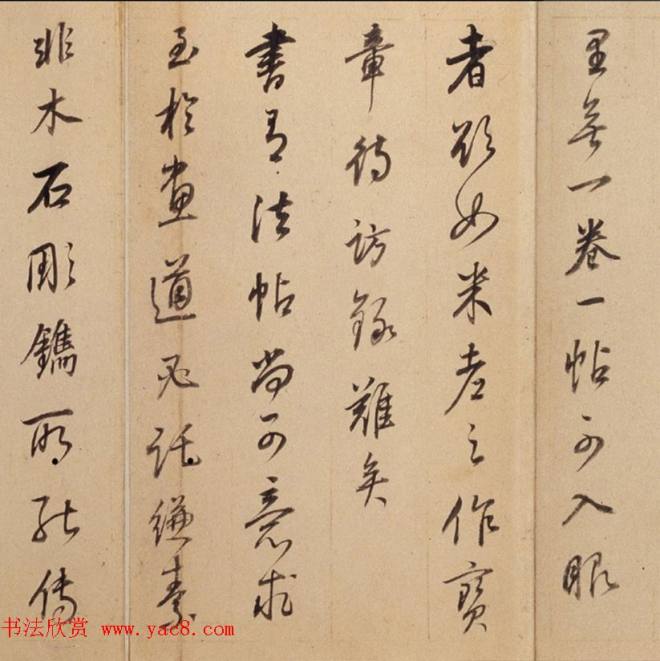 里无一卷一帖可入眼
者欲如米老之作宝
章待访录难矣
書有法帖尚可意求
至於畫道必託縑素
非木石彫鐫所能傳
书法欣赏 www.yac8.com